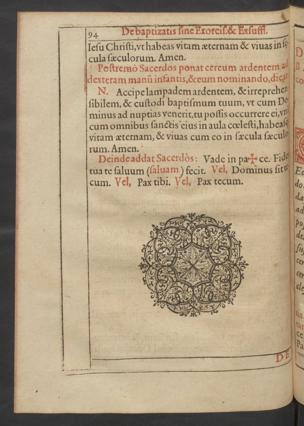 94 De baptizatis sine Exorcis. & Exsuffl.
Iesu Christi, vt habeas vitam æternam & viuas in sę
cula sæculorum. Amen.
Postremò Sacerdos ponat cereum ardentem ad
dexteram manũ infantis, & eum nominando, dicat:
N. Accipe lampadem ardentem, & irreprehen
sibilem, & custodi baptismum tuum, vt cum Do
minus ad nuptias venerit, tu possis occurrere ei, vna
cum omnibus sanctis eius in aula cœlesti, habeasq;
vitam æternam, & viuas cum eo in sæcula sæculo
rum. Amen.
Deinde addat Sacerdos: Vade in pa✠ce. Fides
tua te saluum (saluam) fecit. Vel, Dominus sit te
cum. Vel, Pax tibi. Vel, Pax tecum.
DE